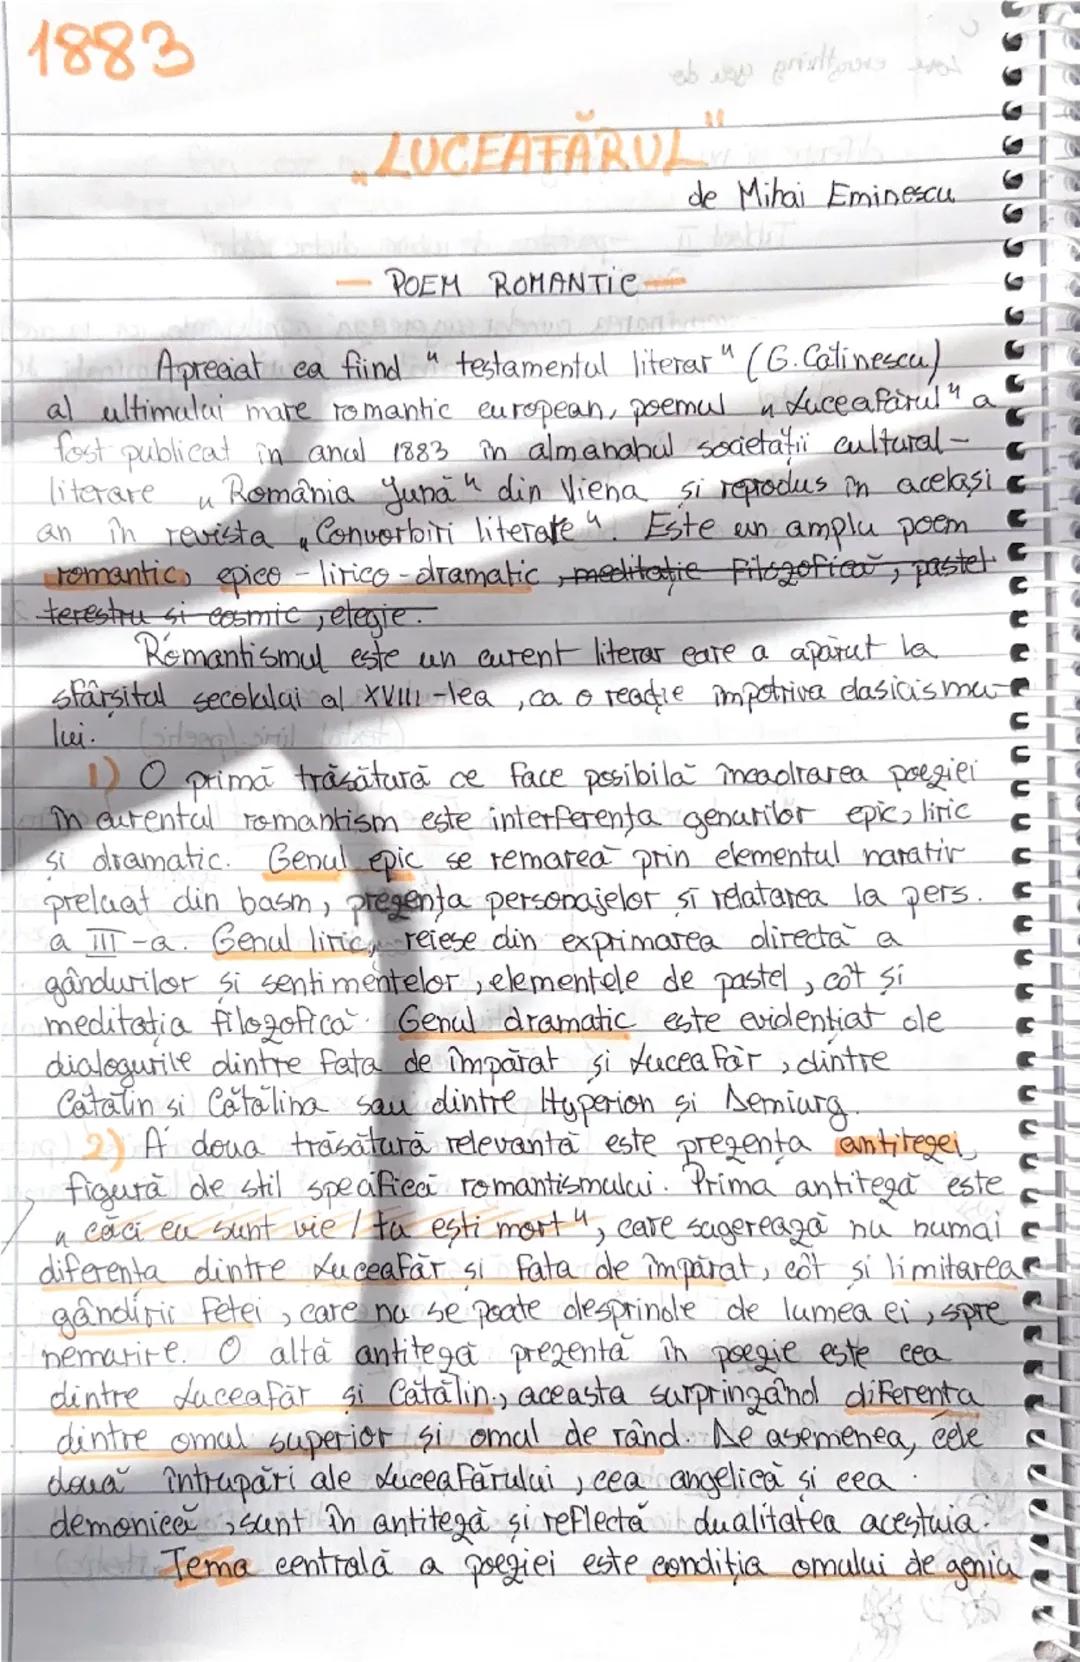 1883
„LUCEAFĂRUL"
de Mihai Eminescu
— POEM ROMANTIC —
Apreciat ca fiind "testamentul literar" (G. Călinescu)
al ultimului mare romantic european, poemul „Luceafărul" a
fost publicat în anul 1883 în almanahul societății cultural-
literare „România Jună" din Viena și reprodus în același
an în revista „Convorbiri literare". Este un amplu poem
romantic, epico-lirico-dramatic, meditație filozofică, pastel
terestru și cosmic, elegie.
Romantismul este un curent literar care a apărut la
sfârșitul secolului al XVIII-lea, ca o reacție împotriva clasicismu-
lui.
1) O primă trăsătură ce face posibilă încadrarea poeziei
în curentul romantism este interferența genurilor epic, liric
și dramatic. Genul epic se remarcă prin elementul narativ
preluat din basm, prezența personajelor și relatarea la pers.
a III-a. Genul liric, reiese din exprimarea directă a
gândurilor și sentimentelor, elementele de pastel, cât și
meditația filozofică. Genul dramatic este evidențiat de
dialogurile dintre fata de împărat și Luceafăr, dintre
Cătălin și Cătălina sau dintre Hyperion și Demiurg.
2) A doua trăsătură relevantă este prezența antitezei,
figură de stil specifică romantismului. Prima antiteză este
„căci eu sunt vie / tu ești mort", care sugerează nu numai
diferența dintre Luceafăr și fata de împărat, cât și limitarea
gândirii fetei, care nu se poate desprinde de lumea ei, spre
nemurire. O altă antiteză prezentă în poezie este cea
dintre Luceafăr și Cătălin, aceasta surprinzând diferența
dintre omul superior și omul de rând. De asemenea, cele
două întrupări ale Luceafărului, cea angelică și cea
demonică, sunt în antiteză și reflectă dualitatea acestuia.
Tema centrală a poeziei este condiția omului de geniu